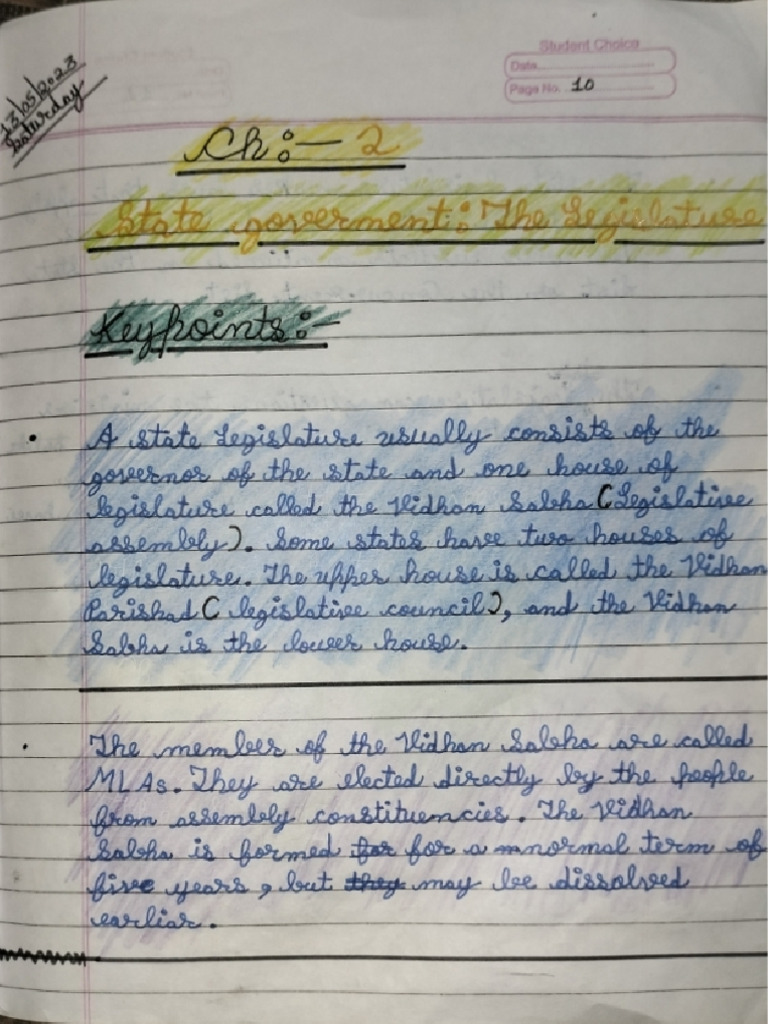 Student Choice
Date
Page No. 10
13/05/2023
Saturday
Ch:- 2
State goverment: The Legislature
Keypoints:-
• A state Legislature usually consists of the
governor of the state and one house of
legislature called the Vidhan Sabha (Legislative
assembly). Some states have two houses of
legislature. The upper house is called the Vidhan
Parishad ( legislative council), and the Vidhan
Sabha is the lower house.
• The member of the Vidhan Sabha are called
MLAs. They are elected directly by the people
from assembly constituencies. The Vidhan
Sabha is formed for for a normal term of
five years, but they may be dissolved
earliar.